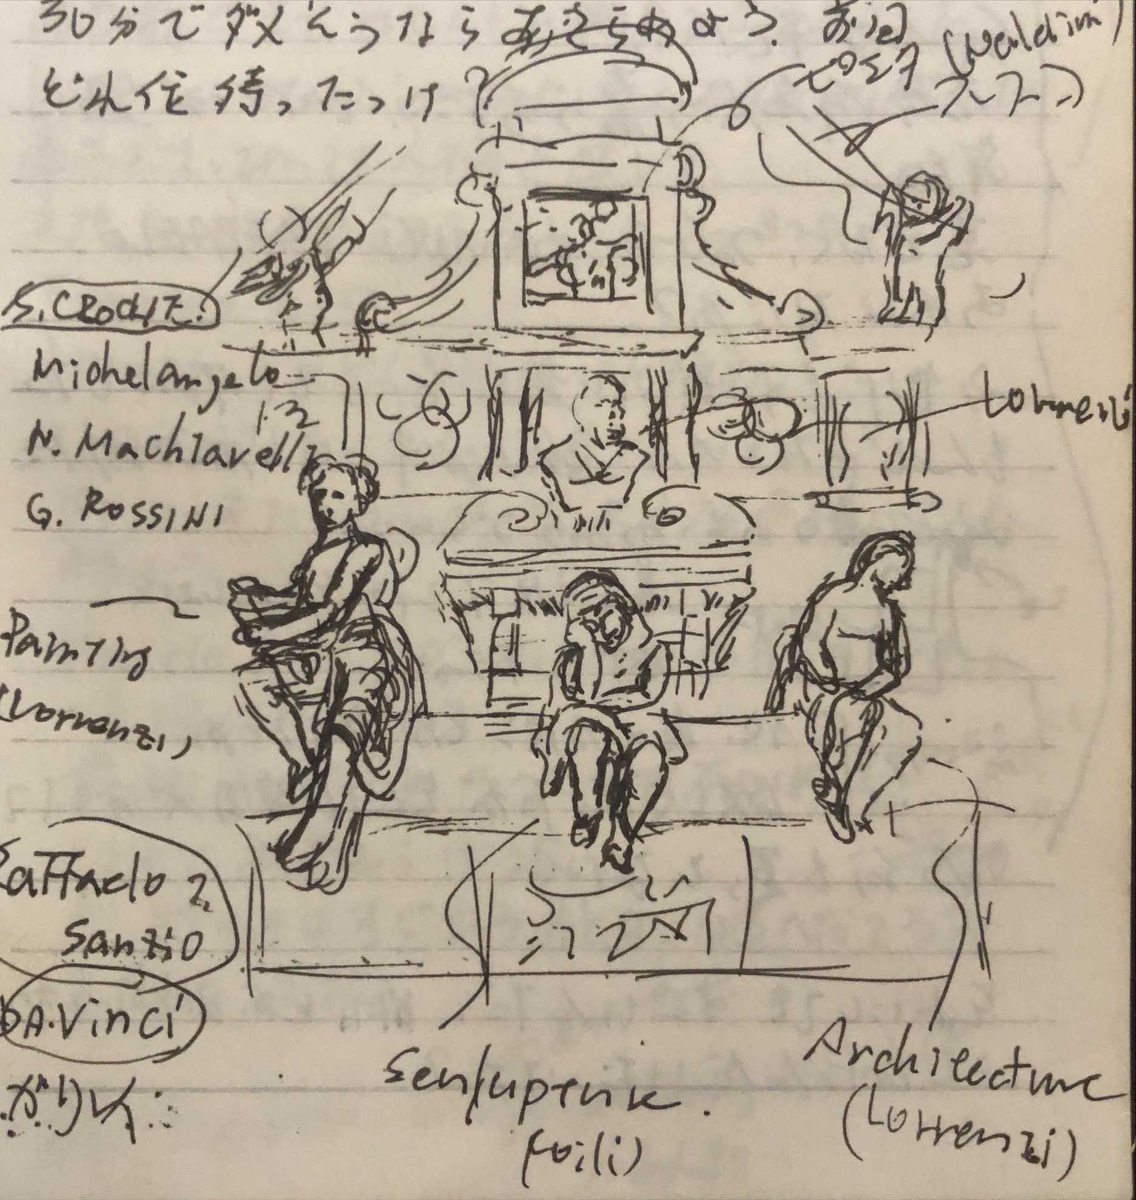 30分でダメそうならあきらめよう. 前回
どれ位待ったっけ?
ピエタ (Naldini)
フレスコ
S. CROCHE.
Michelangelo
N. Machiavelli
G. ROSSINI
Lorrenzi
Painting
(Lorrenzi)
Raffaelo
Sanzio
DA.Vinci
ガリレイ
Architecture
(Lorrenzi)